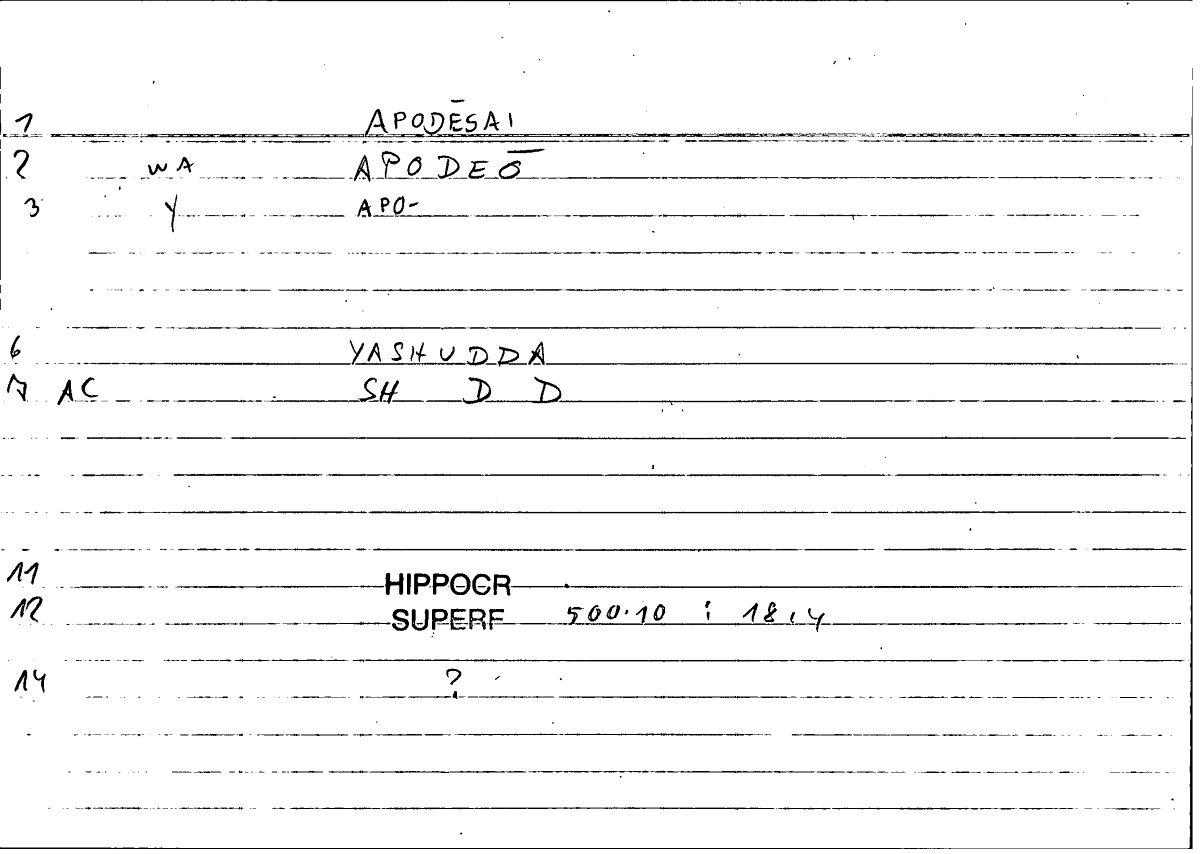 1 APODĒSAI
2 WA APODEŌ
3 Y APO-
6 YASHUDDA
7 AC SH D D
11 HIPPOCR
12 SUPERF 500.10 ; 18,4
14 ?